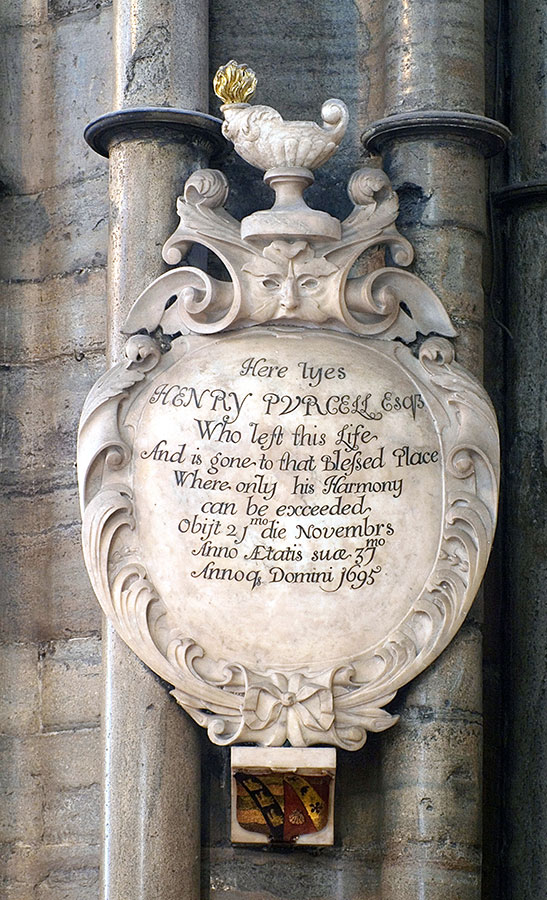 Here lyes
HENRY PVRCELL Esqß
Who left this Life
And is gone to that Bleſsed Place
Where only his Harmony
can be exceeded
Obijt 21mo die Novembrs
Anno Ætatis suæ 37mo
Annoqs Domini 1695